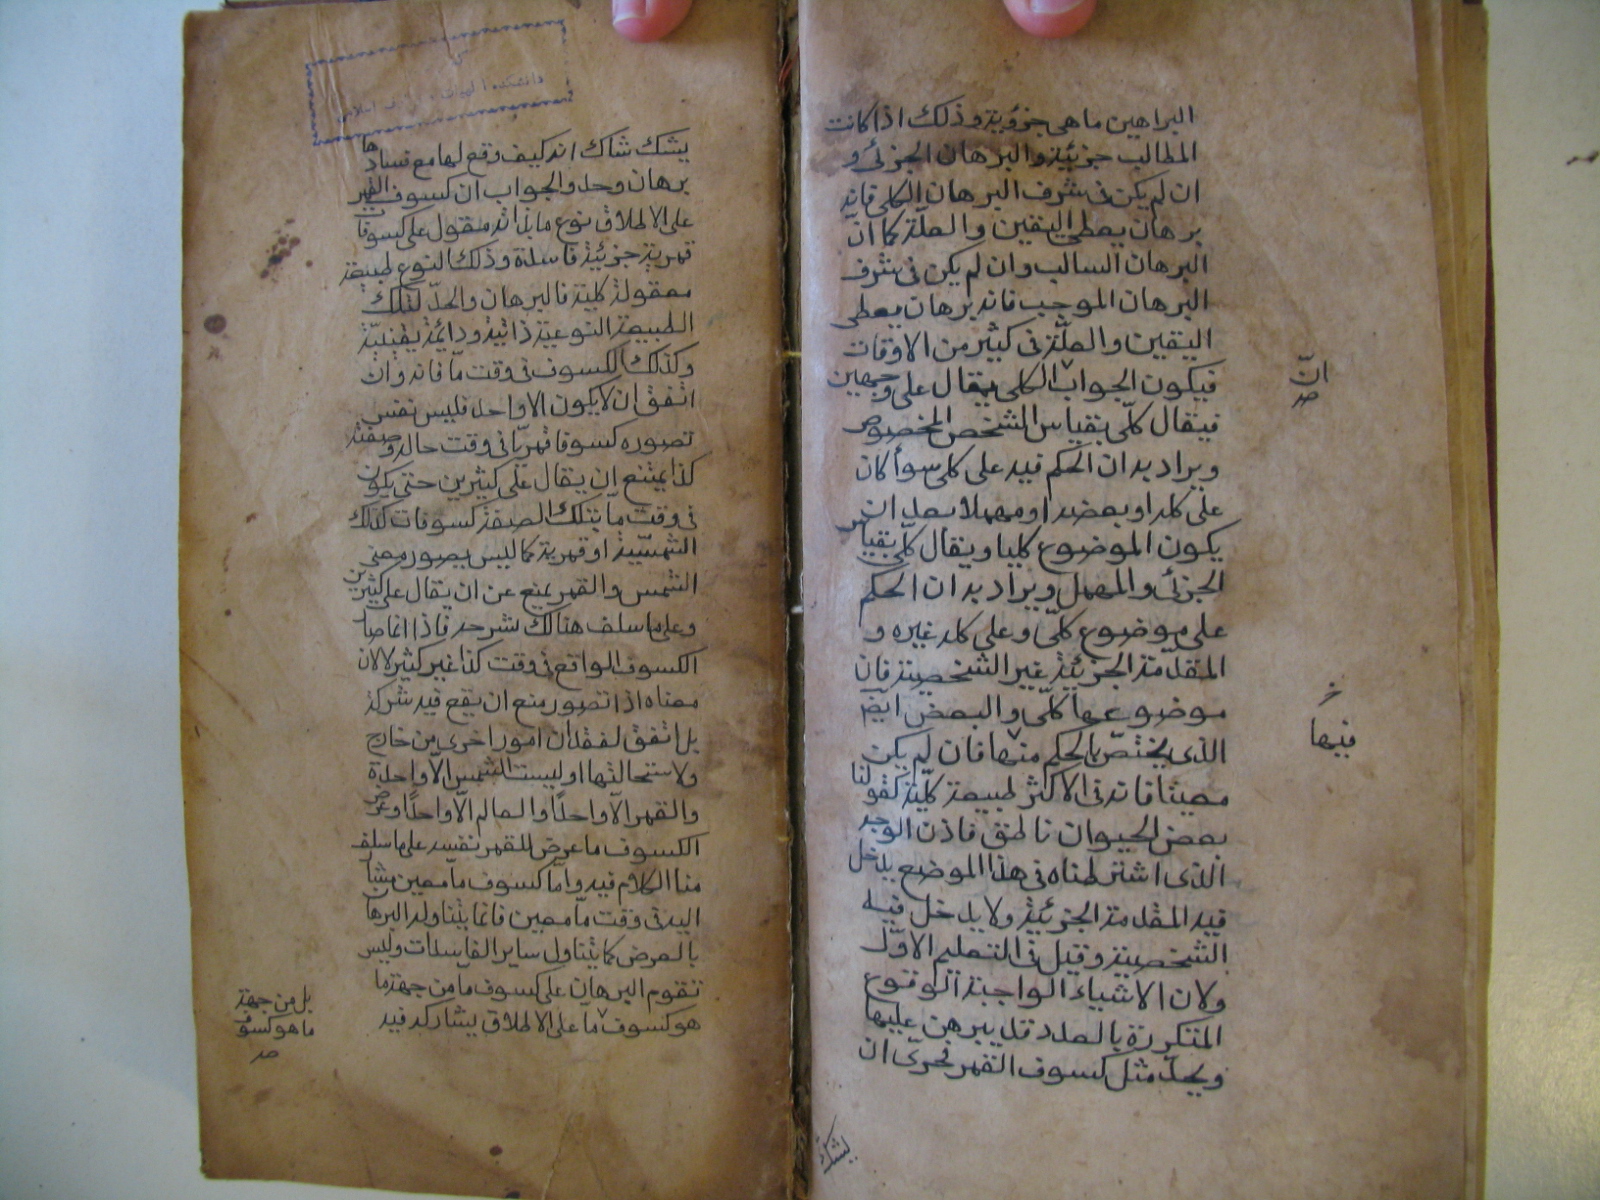 البراهين ما هي جزوية وذلك اذا كانت
المطالب جزئية والبرهان الجزئي و
ان لم يكن في شرف البرهان الكلي فانه
برهان يعطي اليقين والعلة كما ان
البرهان السالب وان لم يكن في شرف
البرهان الموجب فانه برهان يعطي
اليقين والعلّة في كثير من الاوقات
فيكون الجواب الكلي يقال على وجهين
فيقال كلّي بقياس الشخص المخصوص
ويراد به ان الحكم فيه على كلي سوأ كان
على كله او بعضه او مهملا بعد ان
يكون الموضوع كليا ويقال كلّي بقياس
الجزئي والمهمل ويراد به ان الحكم
على موضوع كلّي وعلى كله غيره و
المقدمة الجزئية غير الشخصية فان
موضوعها كلّي والبعض ايضم
الذي يختصّ بالحكم منها فان لم يكن
معينا فانه في الاكثر طبيعة كلّية كقولنا
بعض الحيوان ناطق فاذن الوجه
الذي اشترطناه في هذا الموضع يدخل
فيه المقدمة الجزئية ولا يدخل فيه
الشخصية وقيل في التعليم الاوّل
ولان الاشياء الواجبة الوقوع
المتكررة بالعدد قد يبرهن عليها
ويحدّ مثل كسوف القمر فحرىّ ان
يشك
انّ
صح
خ
فيها
يشك شاك انه كيف وقع لها مع فسادها
برهان وحد والجواب ان كسوف القمر
على الاطلاق نوع ما بذاته مقول على كسوفات
قمرية جزئية فاسدة وذلك النوع طبيعة
معقولة كلية فالبرهان والحدّ لتلك
الطبيعة النوعية ذاتية ودائمة يقينيّة
وكذلك الكسوف في وقت مّا فانه وان
اتفق ان لا يكون الا واحد فليس نفس
تصوره كسوفا قمريّا في وقت حاله وصفته
كذا يمتنع ان يقال على كثيرين حتى يكون
في وقت ما بتلك الصفة كسوفات كذلك
الشمسّية او قمرية كما ليس بصور معنى
الشمس والقمر يمنع عن ان يقال على كثيرين
وعلى ما سلف هنالك شرحه فاذا انما صار
الكسوف الواقع في وقت كذا غير كثير لا لان
معناه اذا تصور منع ان يقع فيه شركة
بل اتفق لفقدان امور اخرى من خارج
ولاستحالتها او ليست الشمس الا واحدة
والقمر الّا واحدًا والعالم الّا واحدًا وعرض
الكسوف ما عرض للقمر نفسه على ما سلف
منا الكلام فيه وامّا كسوف مّا معين مشار
اليه في وقت مّا معين فانما يتناوله البرهان
بالعرض كما يتناول ساير الفاسدات وليس
تقوم البرهان على كسوف مّا من جهة ما
هو كسوف ما على الاطلاق يشاركه فيه
بل من جهة
ما هو كسوف
صح